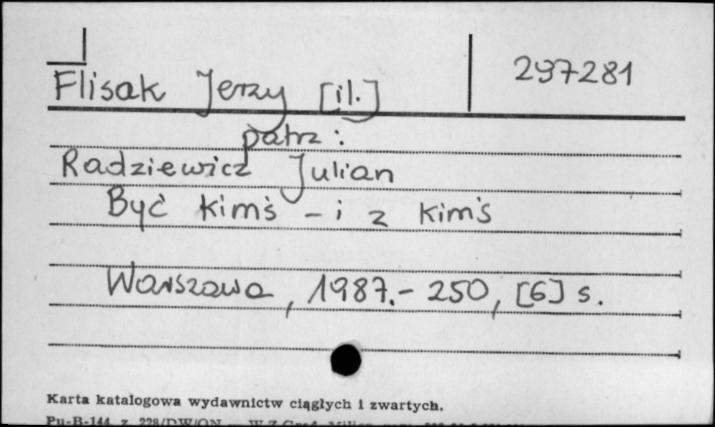 Flisak Jerzy [il.] 297281
patrz:
Radziewicz Julian
Być kimś - i z kimś
Warszawa, 1987.- 250, [6] s.
Karta katalogowa wydawnictw ciągłych i zwartych.
Pu-B-144, z. 228/DW/ON